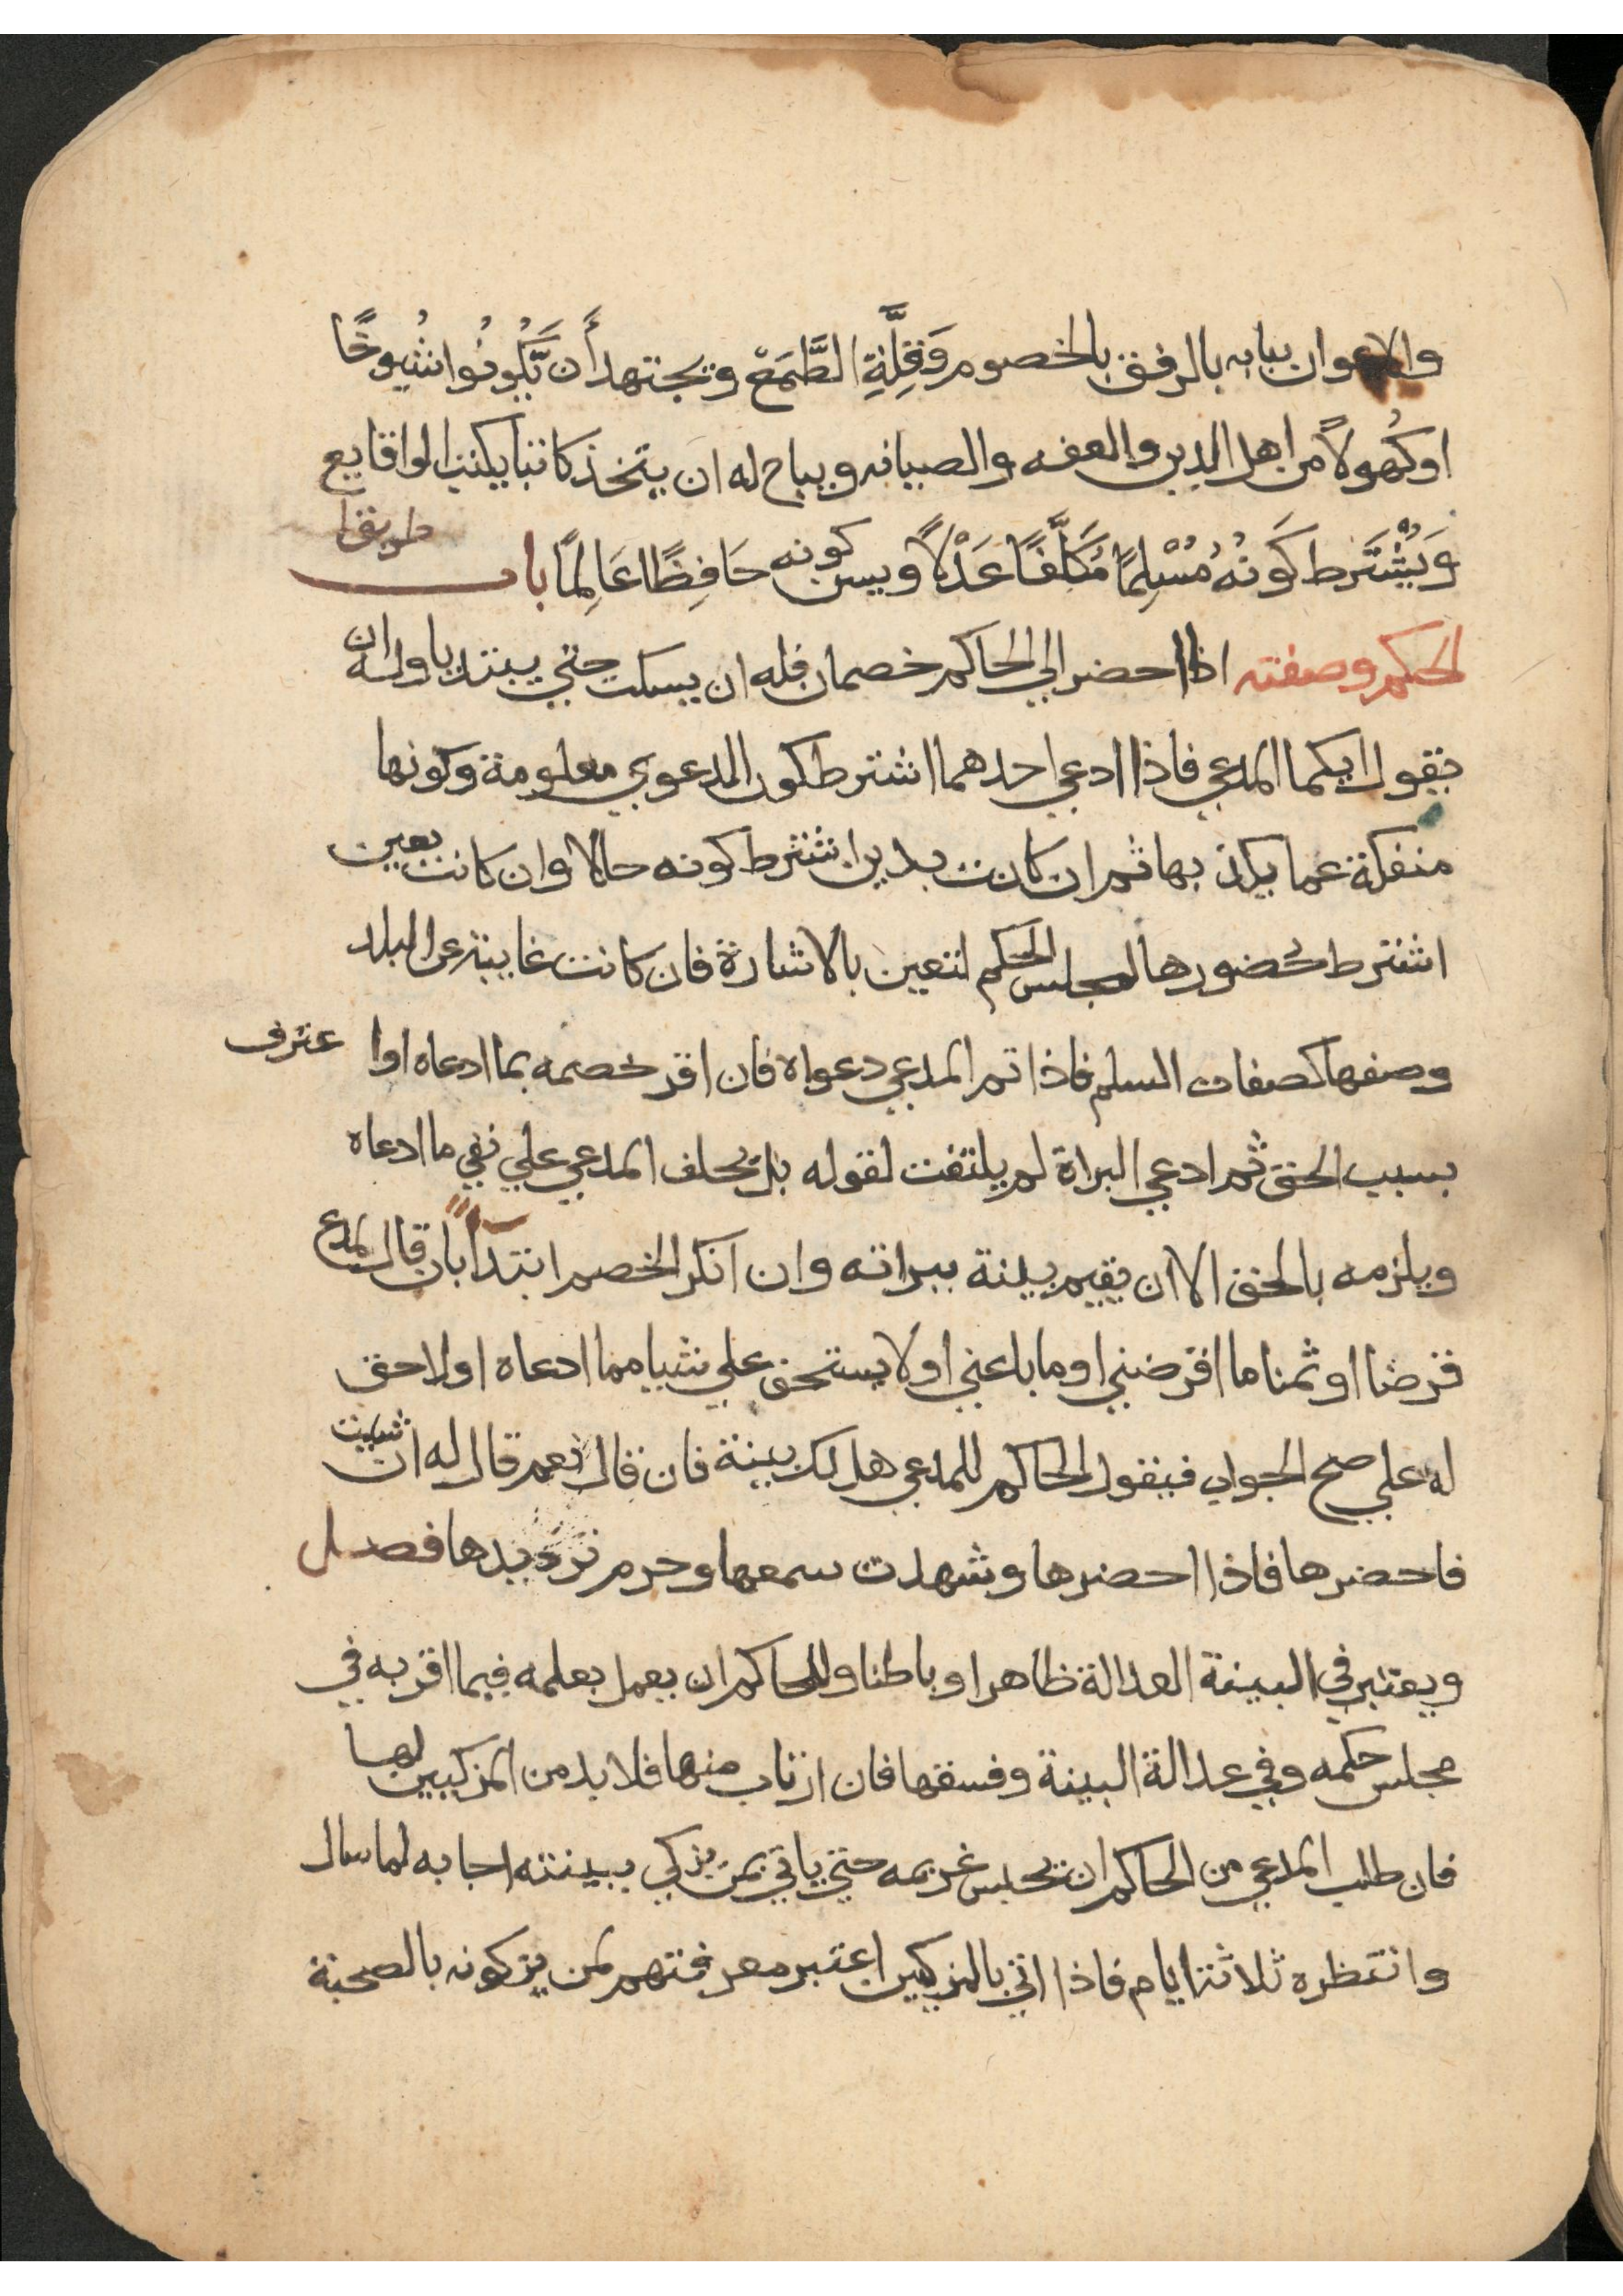 والاعوان ببابه بالرفق بالخصوم وَقِلَّةِ الطَّمَعْ ويجتهد أَن يَّكُونُوا شُيوخًا
اوكُهولاً من اهل الدين والعفه والصيانه ويباح له ان يتخذ كاتبا يكتب الواقايع
وَيُشْتَرط كَونُهُ مُسْلِمًا مُكَلَّفًا عَدْلاً ويسن كونه حَافِظًا عَالِمًا باب طريق
الحكم وصفته اذا احضر الي الحاكم خصمان فله ان يسكت حتي يبتدياوله ان
يقول ايكما المدعي فاذا ادعي احدهما اشترط كون الدعوي معلومة وكونها
منفكة عما يكذبها ثم ان كانت بدين اشترط كونه حالا وان كانت بعين
اشترط حضورها لمجلس الحكم لتتعين بالاشارة فان كانت غايبة عن البلد
وصفها كصفات السلم فاذا تم المدعي دعواه فان اقر خصمه بما ادعاه اوا عترف
بسبب الحق ثم ادعي البراة لم يلتفت لقوله بل يحلف المدعي علي نفي ما ادعاه
ويلزمه بالحق الا ان يقيم بينة ببراته وان انكر الخصم ابتدأ بان قال لمدع
قرضا او ثمنا ما اقرضني او ما باعني او لا يستحق علي شيا مما ادعاه او لا حق
له علي صح الجواب فيقول الحاكم للمدعي هل لك بينة فان قال نعم قال له ان شيت
فاحضرها فاذا احضرها وشهدت سمعها وحرم ترديدها فصل
ويعتبر في البينة العدالة ظاهرا وباطنا وللحاكم ان يعمل بعلمه فيما اقر به في
مجلس حكمه وفي عدالة البينة وفسقها فان ارتاب منها فلا بد من المزكيين لها
فان طلب المدعي من الحاكم ان يحبس غريمه حتي ياتي بمن يزكي ببينته اجابه لما سال
وانتظره ثلاثة ايام فاذا اتي بالمزكيين اعتبر معرفتهم لمن يزكونه بالصحبة